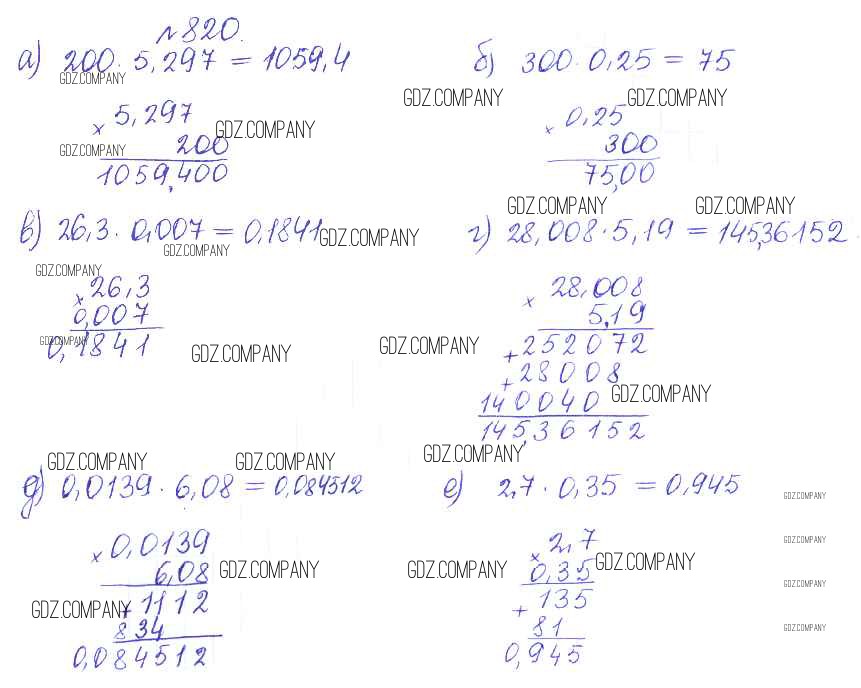 №820.
а) 200 · 5,297 = 1059,4
GDZ.COMPANY
× 5,297
GDZ.COMPANY
200
GDZ.COMPANY
1059,400
б) 300 · 0,25 = 75
GDZ.COMPANY GDZ.COMPANY
× 0,25
300
75,00
GDZ.COMPANY GDZ.COMPANY
в) 26,3 · 0,007 = 0,1841
GDZ.COMPANY
GDZ.COMPANY
GDZ.COMPANY
× 26,3
0,007
GDZ.COMPANY
0,1841
GDZ.COMPANY
г) 28,008 · 5,19 = 145,36152
× 28,008
5,19
GDZ.COMPANY
+ 252072
+ 28008
GDZ.COMPANY
140040
145,36152
GDZ.COMPANY
GDZ.COMPANY GDZ.COMPANY
д) 0,0139 · 6,08 = 0,084512
× 0,0139
6,08
GDZ.COMPANY
GDZ.COMPANY
+ 1112
834
0,084512
е) 2,7 · 0,35 = 0,945
GDZ.COMPANY
× 2,7
GDZ.COMPANY
GDZ.COMPANY GDZ.COMPANY
0,35
GDZ.COMPANY
+ 135
81
GDZ.COMPANY
0,945